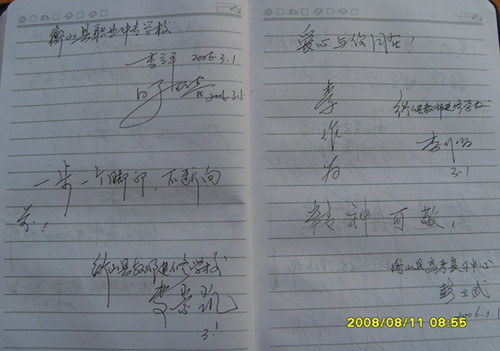 衡山县职业中专学校
李
2006.3.1
2006.3.1
一步一个脚印,不断向
前。
衡山县教师进修学校
3.1
爱心与你同在!
李作为
衡山县教师进修学校
李
3.1
精神可敬,
衡山县高考复习中心
彭卫武
2006.3.1
2008/08/11 08:55